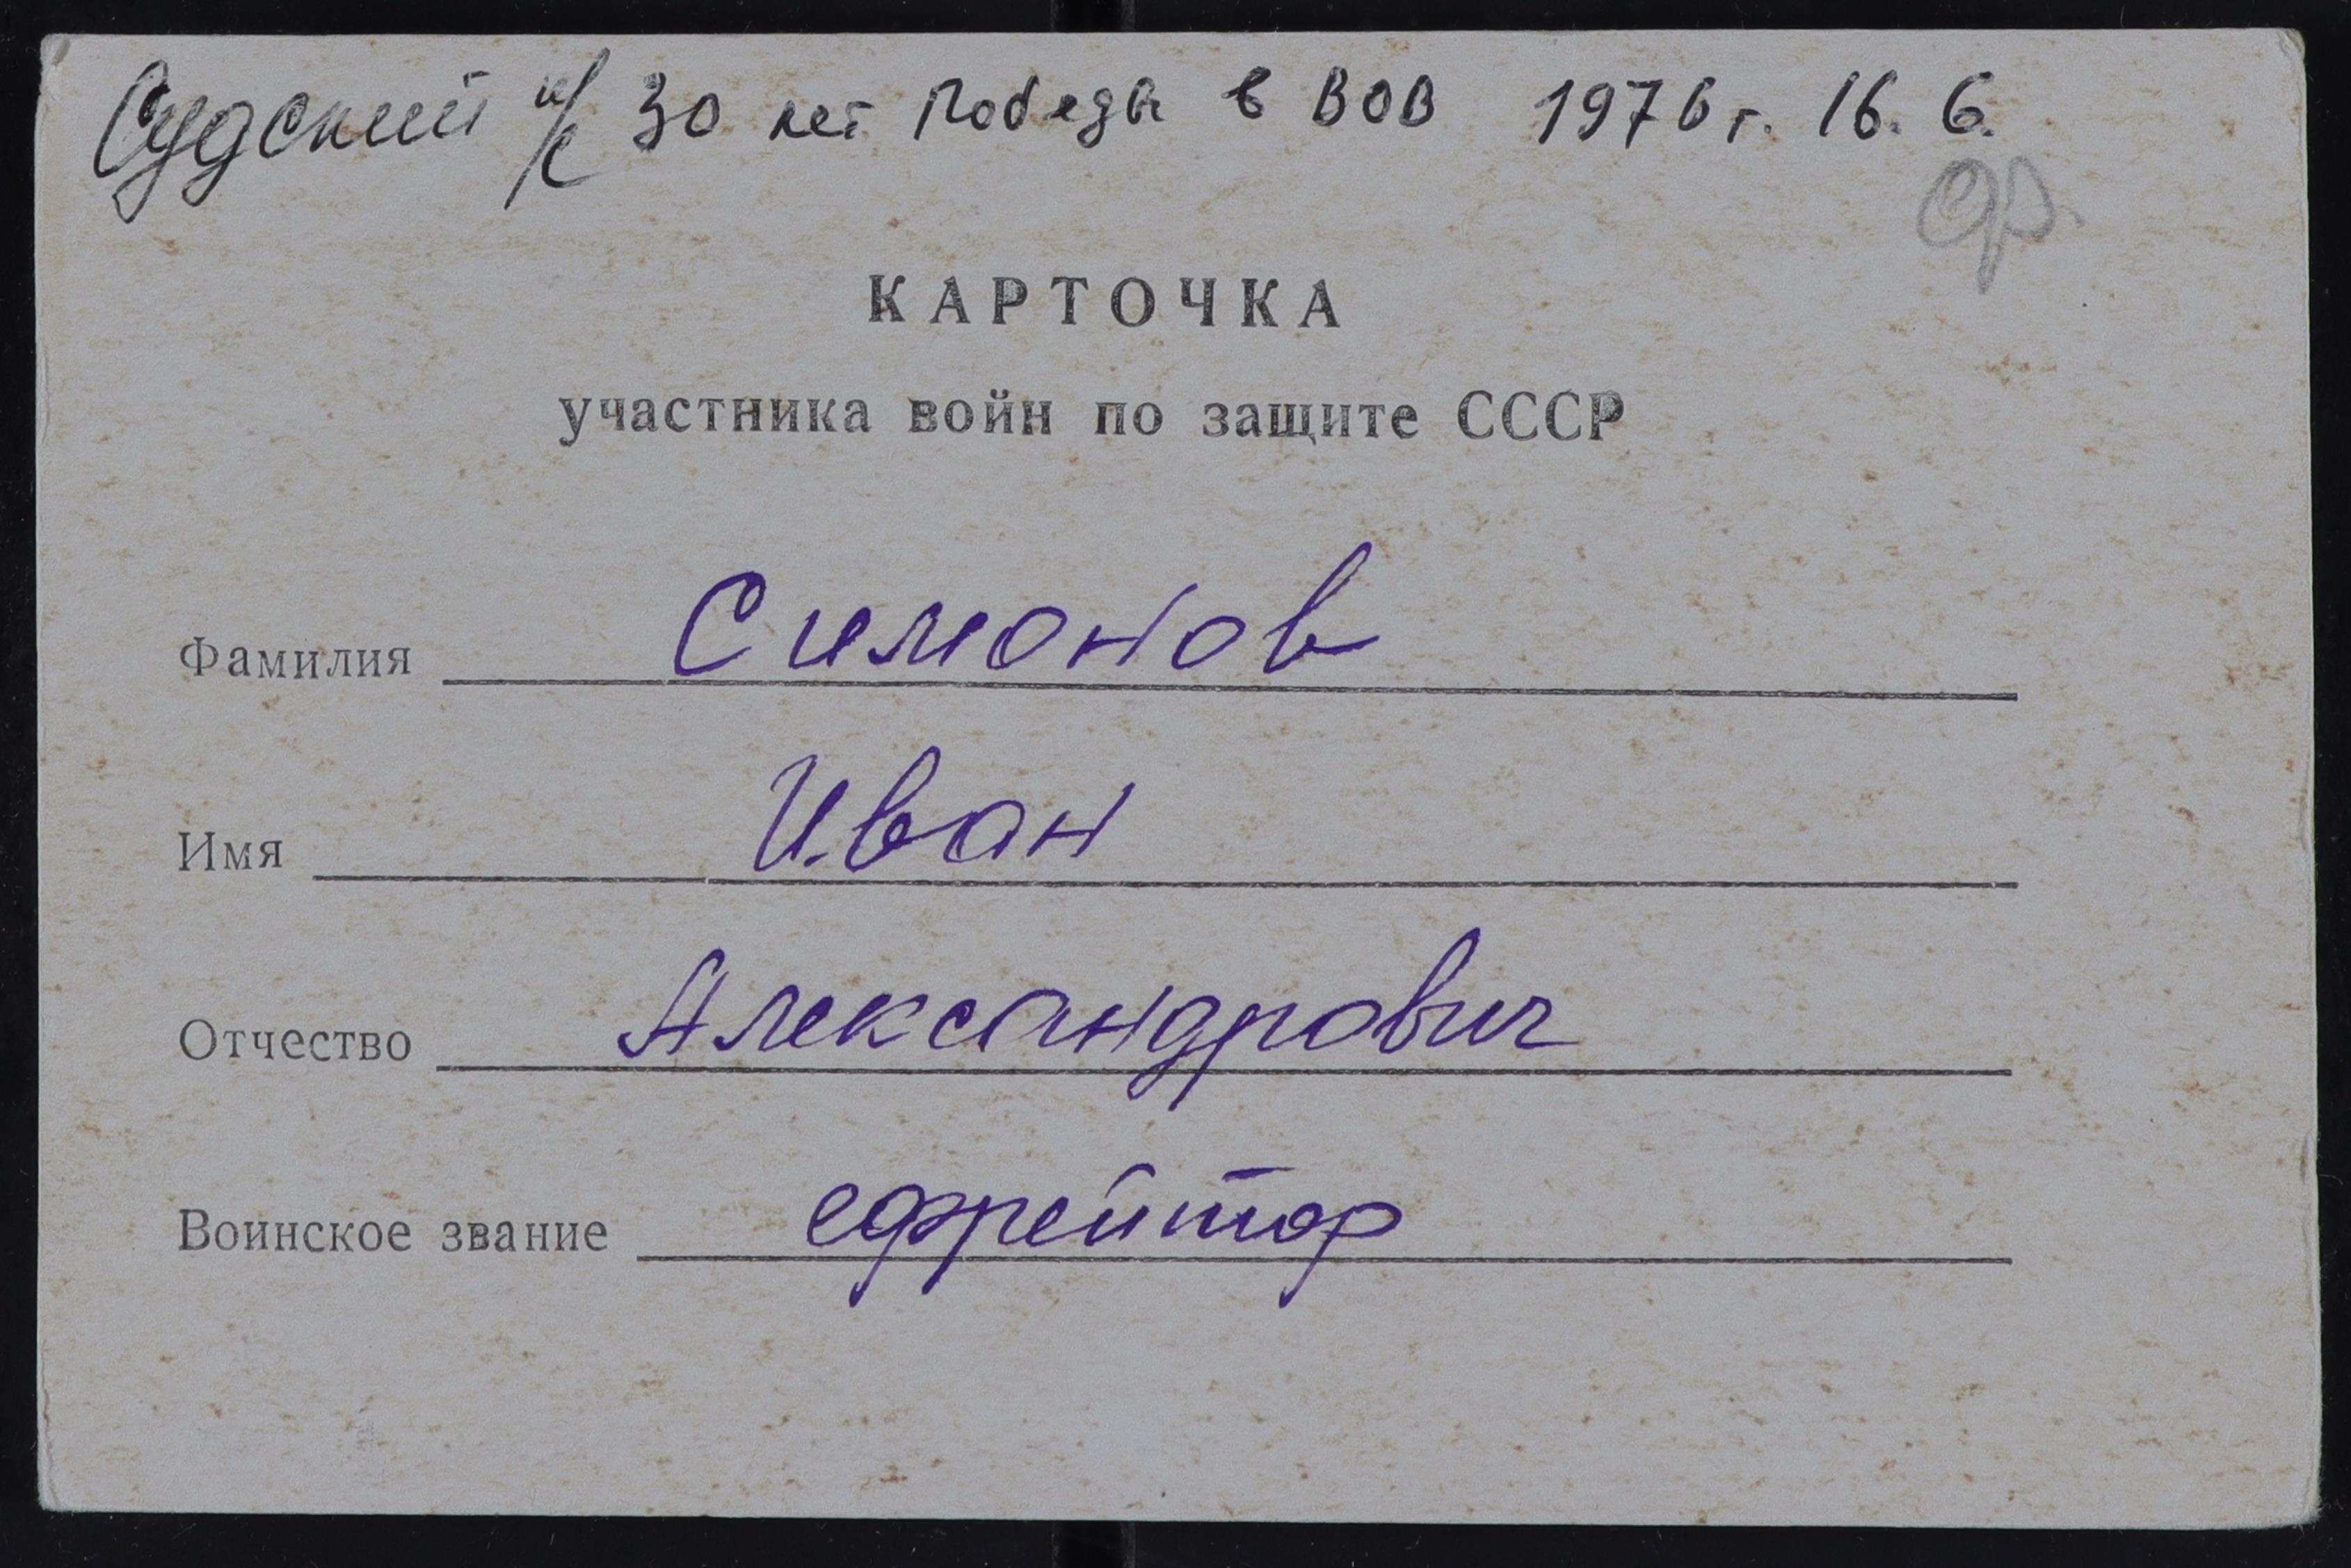 Судский с/с 30 лет Победы в ВОВ 1976 г. 16. 6.
КАРТОЧКА
участника войн по защите СССР
Фамилия Симонов
Имя Иван
Отчество Александрович
Воинское звание ефрейтор